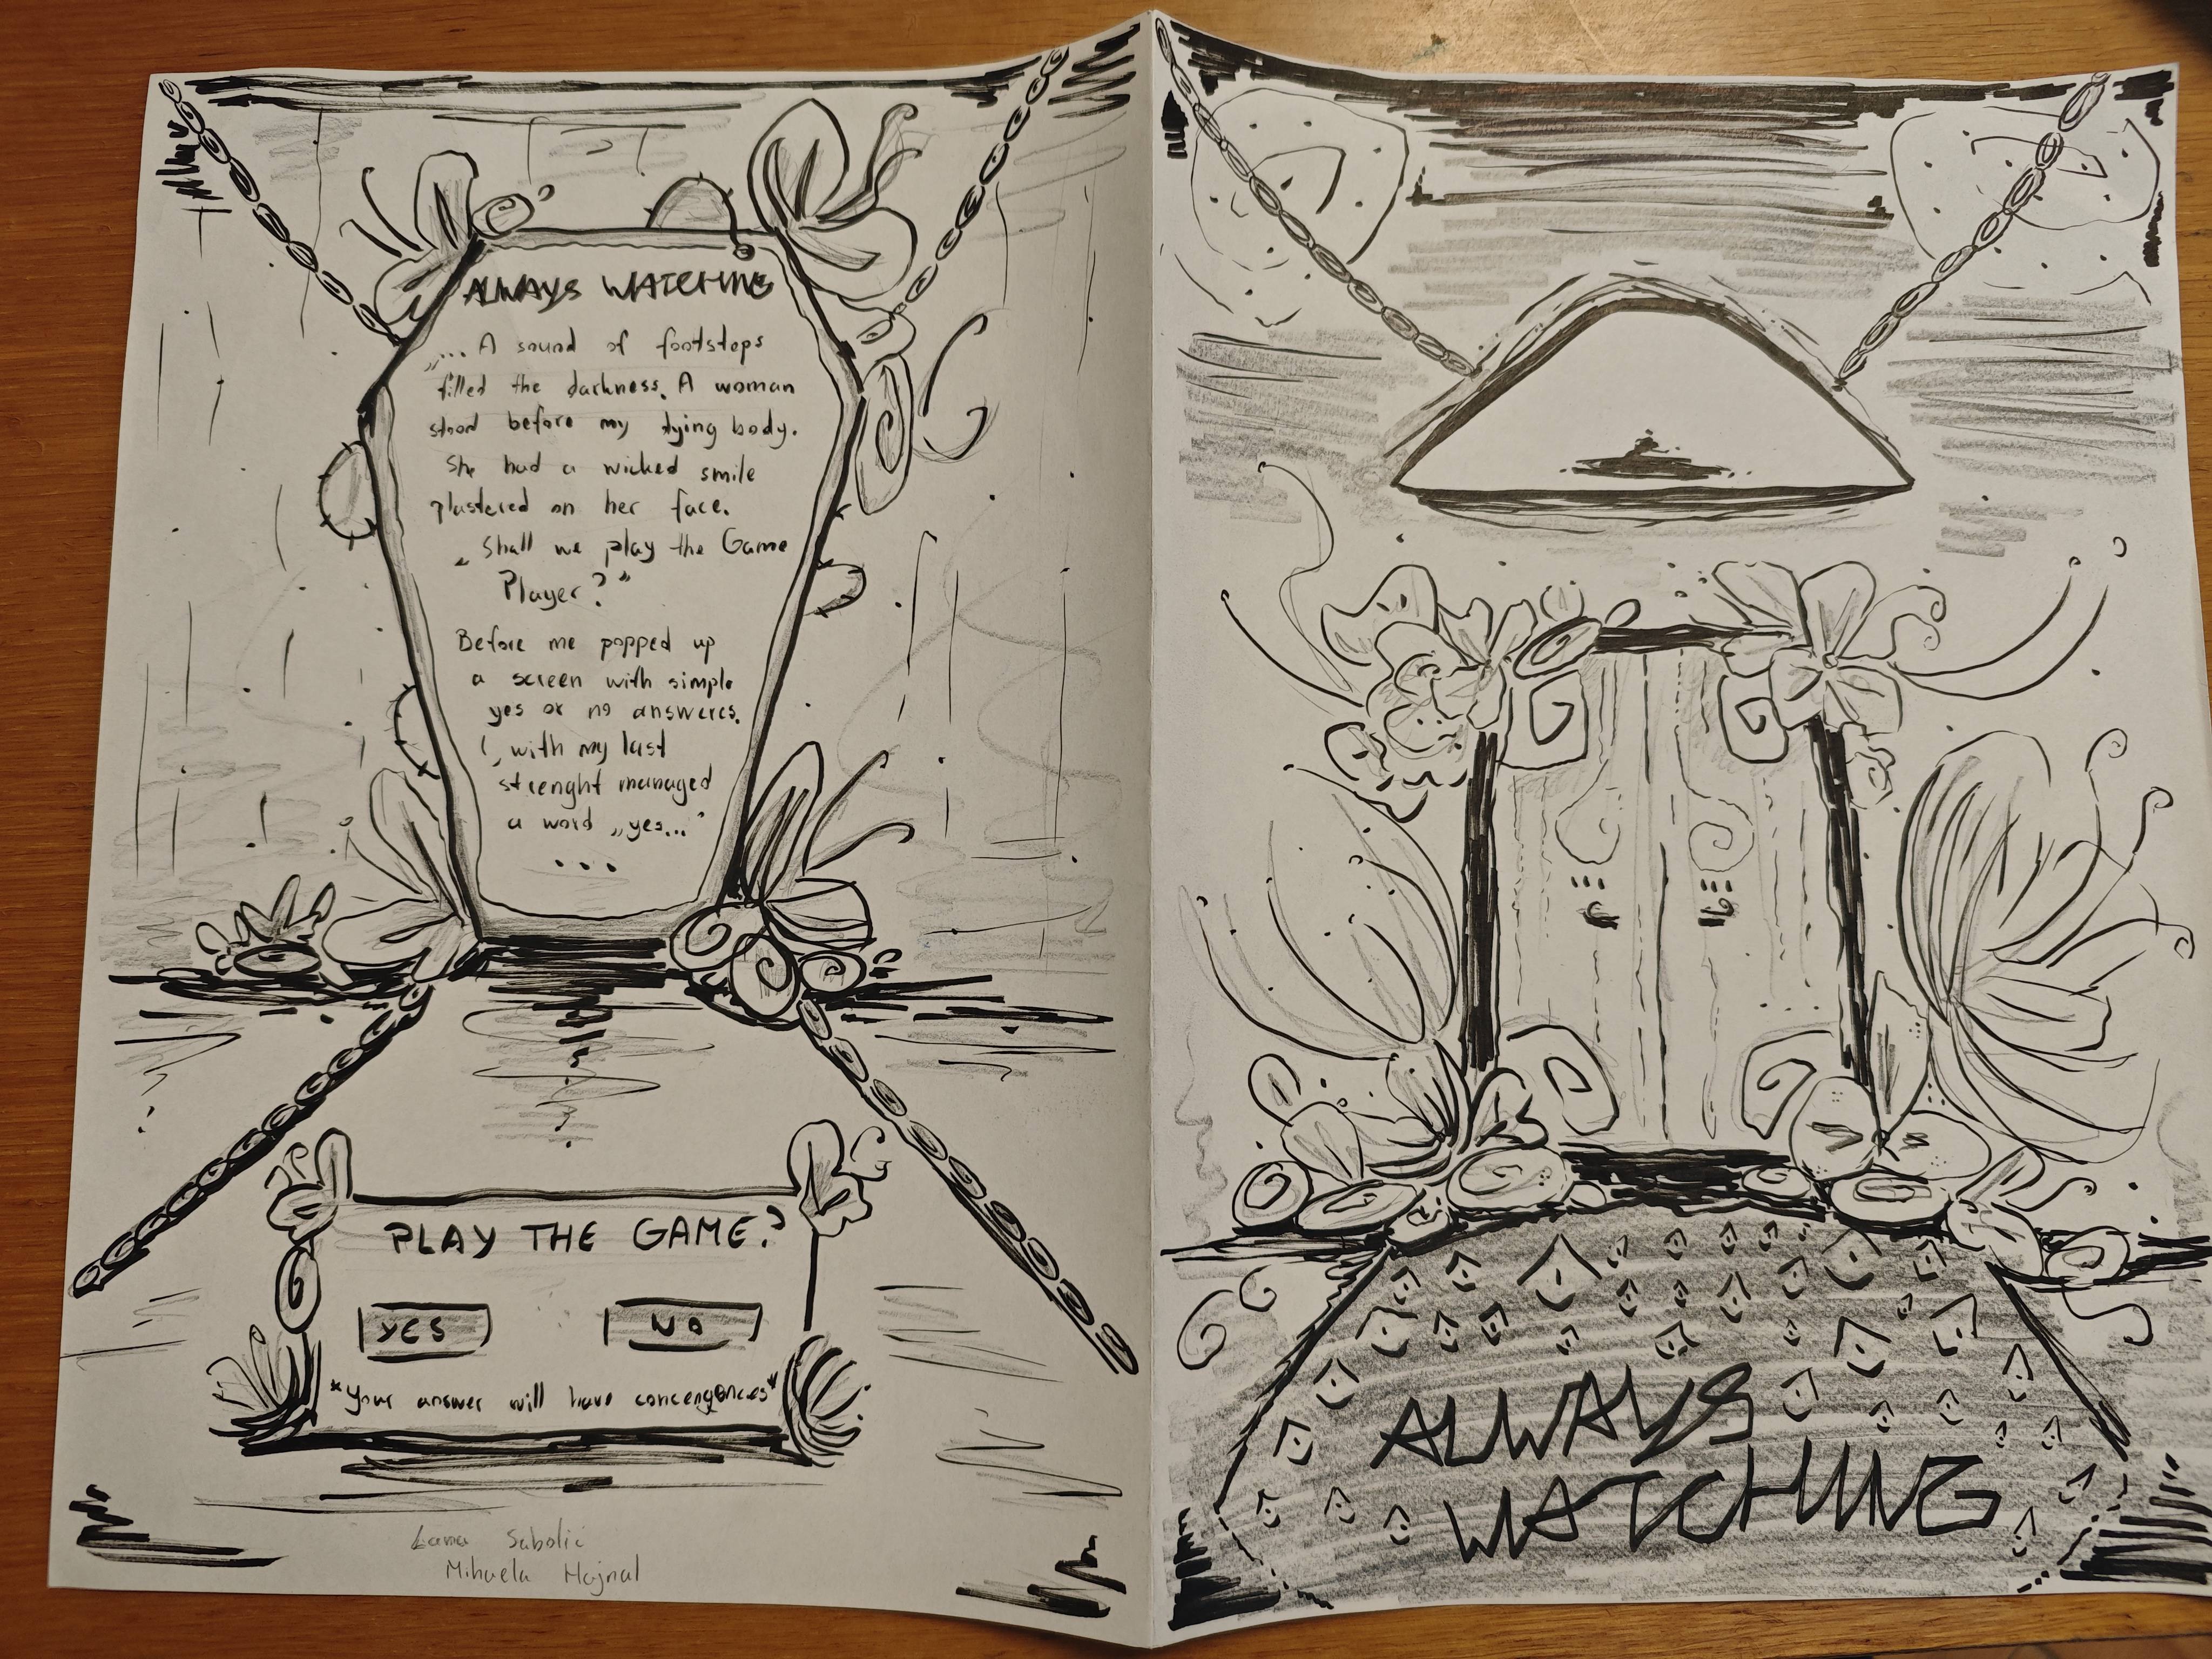 ALWAYS WATCHING
„... A sound of footsteps
filled the darkness. A woman
stood before my dying body.
She had a wicked smile
plastered on her face.
„Shall we play the Game
Player?"
Before me popped up
a screen with simple
yes or no answeres.
I, with my last
strenght managed
a word „yes..."
...
PLAY THE GAME?
YES NO
*your answer will have concenqences*
Lana Sabolić
Mihaela Hajnal
ALWAYS
WATCHING